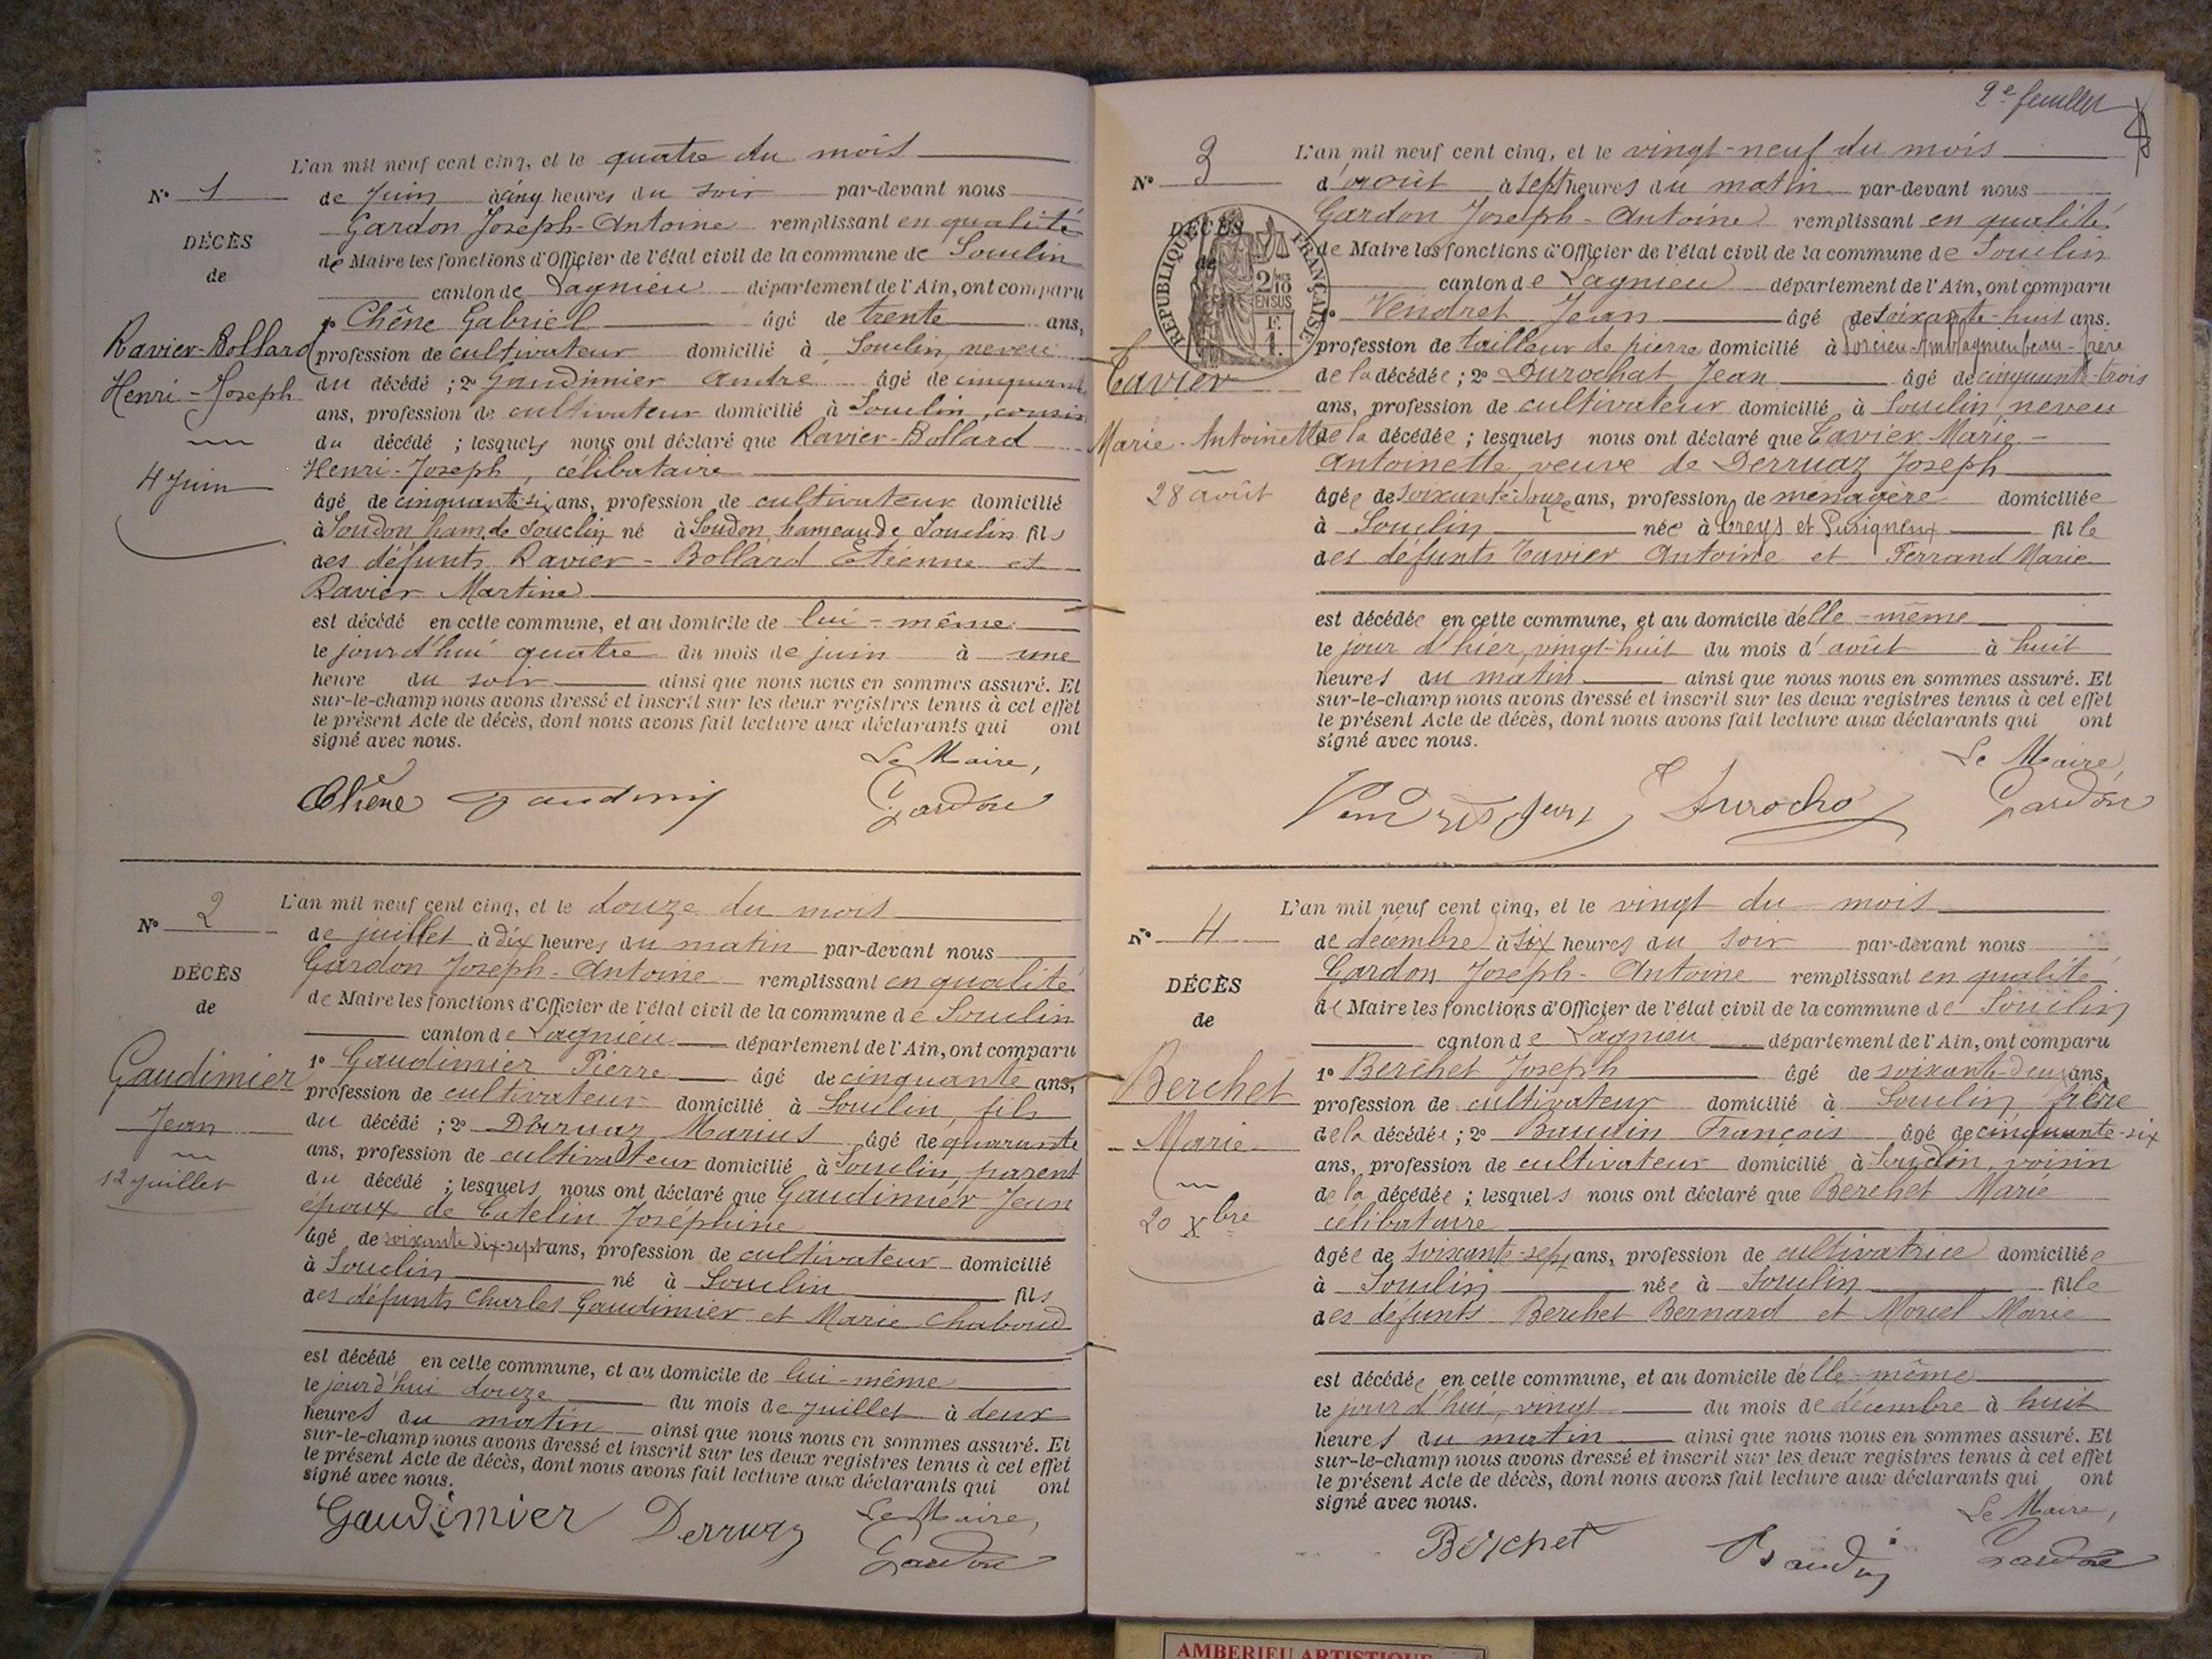 L'an mil neuf cent cinq, et le quatre du mois
N° 1 de Juin à cinq heures du soir par-devant nous
Gardon Joseph-Antoine remplissant en qualité
DÉCÈS de Maire les fonctions d'Officier de l'état civil de la commune de Souclin
de canton de Lagnieu département de l'Ain, ont comparu
1° Chêne Gabriel âgé de trente ans,
Ravier-Bollard profession de cultivateur domicilié à Souclin, neveu
Henri-Joseph du décédé ; 2° Gaudimier André âgé de cinquante
ans, profession de cultivateur domicilié à Souclin, cousin
du décédé ; lesquels nous ont déclaré que Ravier-Bollard
Henri-Joseph, célibataire
4 Juin âgé de cinquante-six ans, profession de cultivateur domicilié
à Soudon ham. de Souclin né à Soudon, hameau de Souclin fils
des défunts Ravier-Bollard Etienne et
Ravier Martine
est décédé en cette commune, et au domicile de lui-même
le jourd'hui quatre du mois de juin à une
heure du soir ainsi que nous nous en sommes assuré. Et
sur-le-champ nous avons dressé et inscrit sur les deux registres tenus à cet effet
le présent Acte de décès, dont nous avons fait lecture aux déclarants qui ont
signé avec nous.
Le Maire,
Chêne Gardon
L'an mil neuf cent cinq, et le douze du mois
N° 2 de juillet à dix heures du matin par-devant nous
Gardon Joseph-Antoine remplissant en qualité
DÉCÈS de Maire les fonctions d'Officier de l'état civil de la commune de Souclin
de canton de Lagnieu département de l'Ain, ont comparu
Gaudimier 1° Gaudimier Pierre âgé de cinquante ans,
profession de cultivateur domicilié à Souclin, fils
Jean du décédé ; 2° Derruaz Marius âgé de quarante
ans, profession de cultivateur domicilié à Souclin, parent
12 juillet du décédé ; lesquels nous ont déclaré que Gaudimier Jean
époux de Catelin Joséphine
âgé de soixante dix-sept ans, profession de cultivateur domicilié
à Souclin né à Souclin fils
des défunts Charles Gaudimier et Marie Chaboud
est décédé en cette commune, et au domicile de lui-même
le jourd'hui douze du mois de juillet à deux
heures du matin ainsi que nous nous en sommes assuré. Et
sur-le-champ nous avons dressé et inscrit sur les deux registres tenus à cet effet
le présent Acte de décès, dont nous avons fait lecture aux déclarants qui ont
signé avec nous.
Le Maire,
Gaudimier Derruaz Gardon
9e feuillet
L'an mil neuf cent cinq, et le vingt-neuf du mois
N° 3 d'août à sept heures du matin par-devant nous
Gardon Joseph-Antoine remplissant en qualité
DÉCÈS de Maire les fonctions d'Officier de l'état civil de la commune de Souclin
de canton de Lagnieu département de l'Ain, ont comparu
RÉPUBLIQUE FRANÇAISE
2/10 EN SUS
1° Vendret Jean âgé de soixante-huit ans.
profession de tailleur de pierre domicilié à Porcieu-Amblagnieu beau-frère
Tavier de la décédée ; 2° Durochat Jean âgé de cinquante-trois
ans, profession de cultivateur domicilié à Souclin neveu
Marie-Antoinette de la décédée ; lesquels nous ont déclaré que Tavier Marie-
Antoinette, veuve de Derruaz Joseph
28 août âgée de ans, profession de ménagère domiciliée
à Souclin née à Creys et Pusigneux fille
des défunts Tavier Antoine et Ferrand Marie
est décédée en cette commune, et au domicile d'elle-même
le jour d'hier, vingt-huit du mois d'août à huit
heures du matin ainsi que nous nous en sommes assuré. Et
sur-le-champ nous avons dressé et inscrit sur les deux registres tenus à cet effet
le présent Acte de décès, dont nous avons fait lecture aux déclarants qui ont
signé avec nous.
Le Maire,
Gardon
L'an mil neuf cent cinq, et le vingt du mois
N° 4 de décembre à six heures du soir par-devant nous
Gardon Joseph-Antoine remplissant en qualité
DÉCÈS de Maire les fonctions d'Officier de l'état civil de la commune de Souclin
de canton de Lagnieu département de l'Ain, ont comparu
1° Berchet Joseph âgé de soixante-deux ans,
Berchet profession de cultivateur domicilié à Souclin, frère
Marie de la décédée ; 2° Baudin François âgé de cinquante-six
ans, profession de cultivateur domicilié à Souclin, voisin
de la décédée ; lesquels nous ont déclaré que Berchet Marie
20 Xbre célibataire
âgée de soixante-sept ans, profession de cultivatrice domiciliée
à Souclin née à Souclin fille
des défunts Berchet Bernard et Morel Marie
est décédée en cette commune, et au domicile d'elle-même
le jourd'hui, vingt du mois de décembre à huit
heures du matin ainsi que nous nous en sommes assuré. Et
sur-le-champ nous avons dressé et inscrit sur les deux registres tenus à cet effet
le présent Acte de décès, dont nous avons fait lecture aux déclarants qui ont
signé avec nous.
Le Maire,
Berchet Baudin Gardon
AMBERIEU ARTISTIQUE